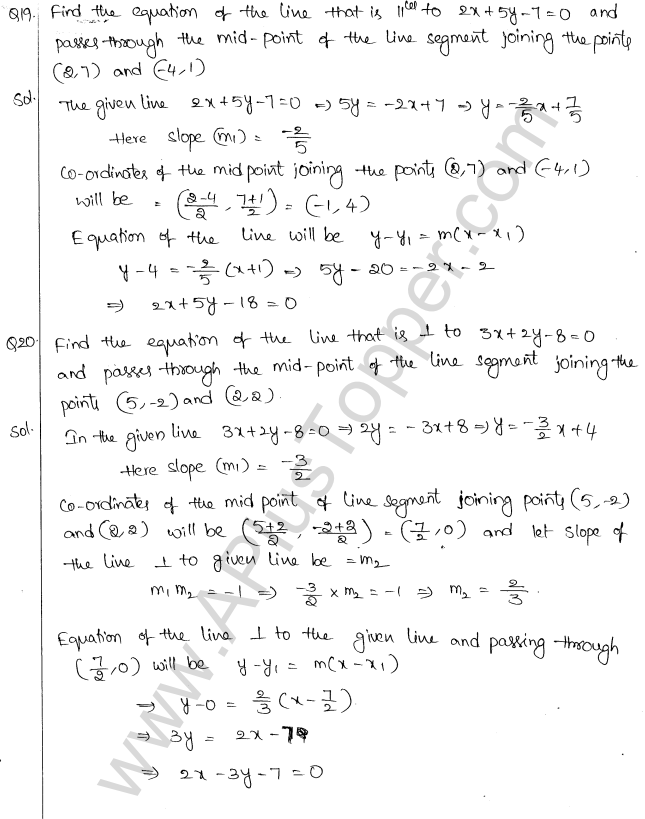 Q19. Find the equation of the line that is ||lel to 2x+5y-7=0 and
passes through the mid-point of the line segment joining the points
(2,7) and (-4,1)
Sol. The given line 2x+5y-7=0 ⇒ 5y = -2x+7 ⇒ y = -2/5 x + 7/5
Here slope (m1) = -2/5
Co-ordinates of the midpoint joining the points (2,7) and (-4,1)
will be = (2-4/2, 7+1/2) = (-1, 4)
Equation of the line will be y-y1 = m(x-x1)
y-4 = -2/5 (x+1) ⇒ 5y-20 = -2x-2
⇒ 2x+5y-18=0
Q20. Find the equation of the line that is ⊥ to 3x+2y-8=0
and passes through the mid-point of the line segment joining the
points (5,-2) and (2,2).
Sol. In the given line 3x+2y-8=0 ⇒ 2y = -3x+8 ⇒ y = -3/2 x + 4
Here slope (m1) = -3/2
Co-ordinates of the mid point of line segment joining points (5,-2)
and (2,2) will be (5+2/2, -2+2/2) = (7/2, 0) and let slope of
the line ⊥ to given line be = m2
m1 m2 = -1 ⇒ -3/2 × m2 = -1 ⇒ m2 = 2/3.
Equation of the line ⊥ to the given line and passing through
(7/2, 0) will be y-y1 = m(x-x1)
⇒ y-0 = 2/3 (x-7/2)
⇒ 3y = 2x-7
⇒ 2x-3y-7=0
www.APlusTopper.com